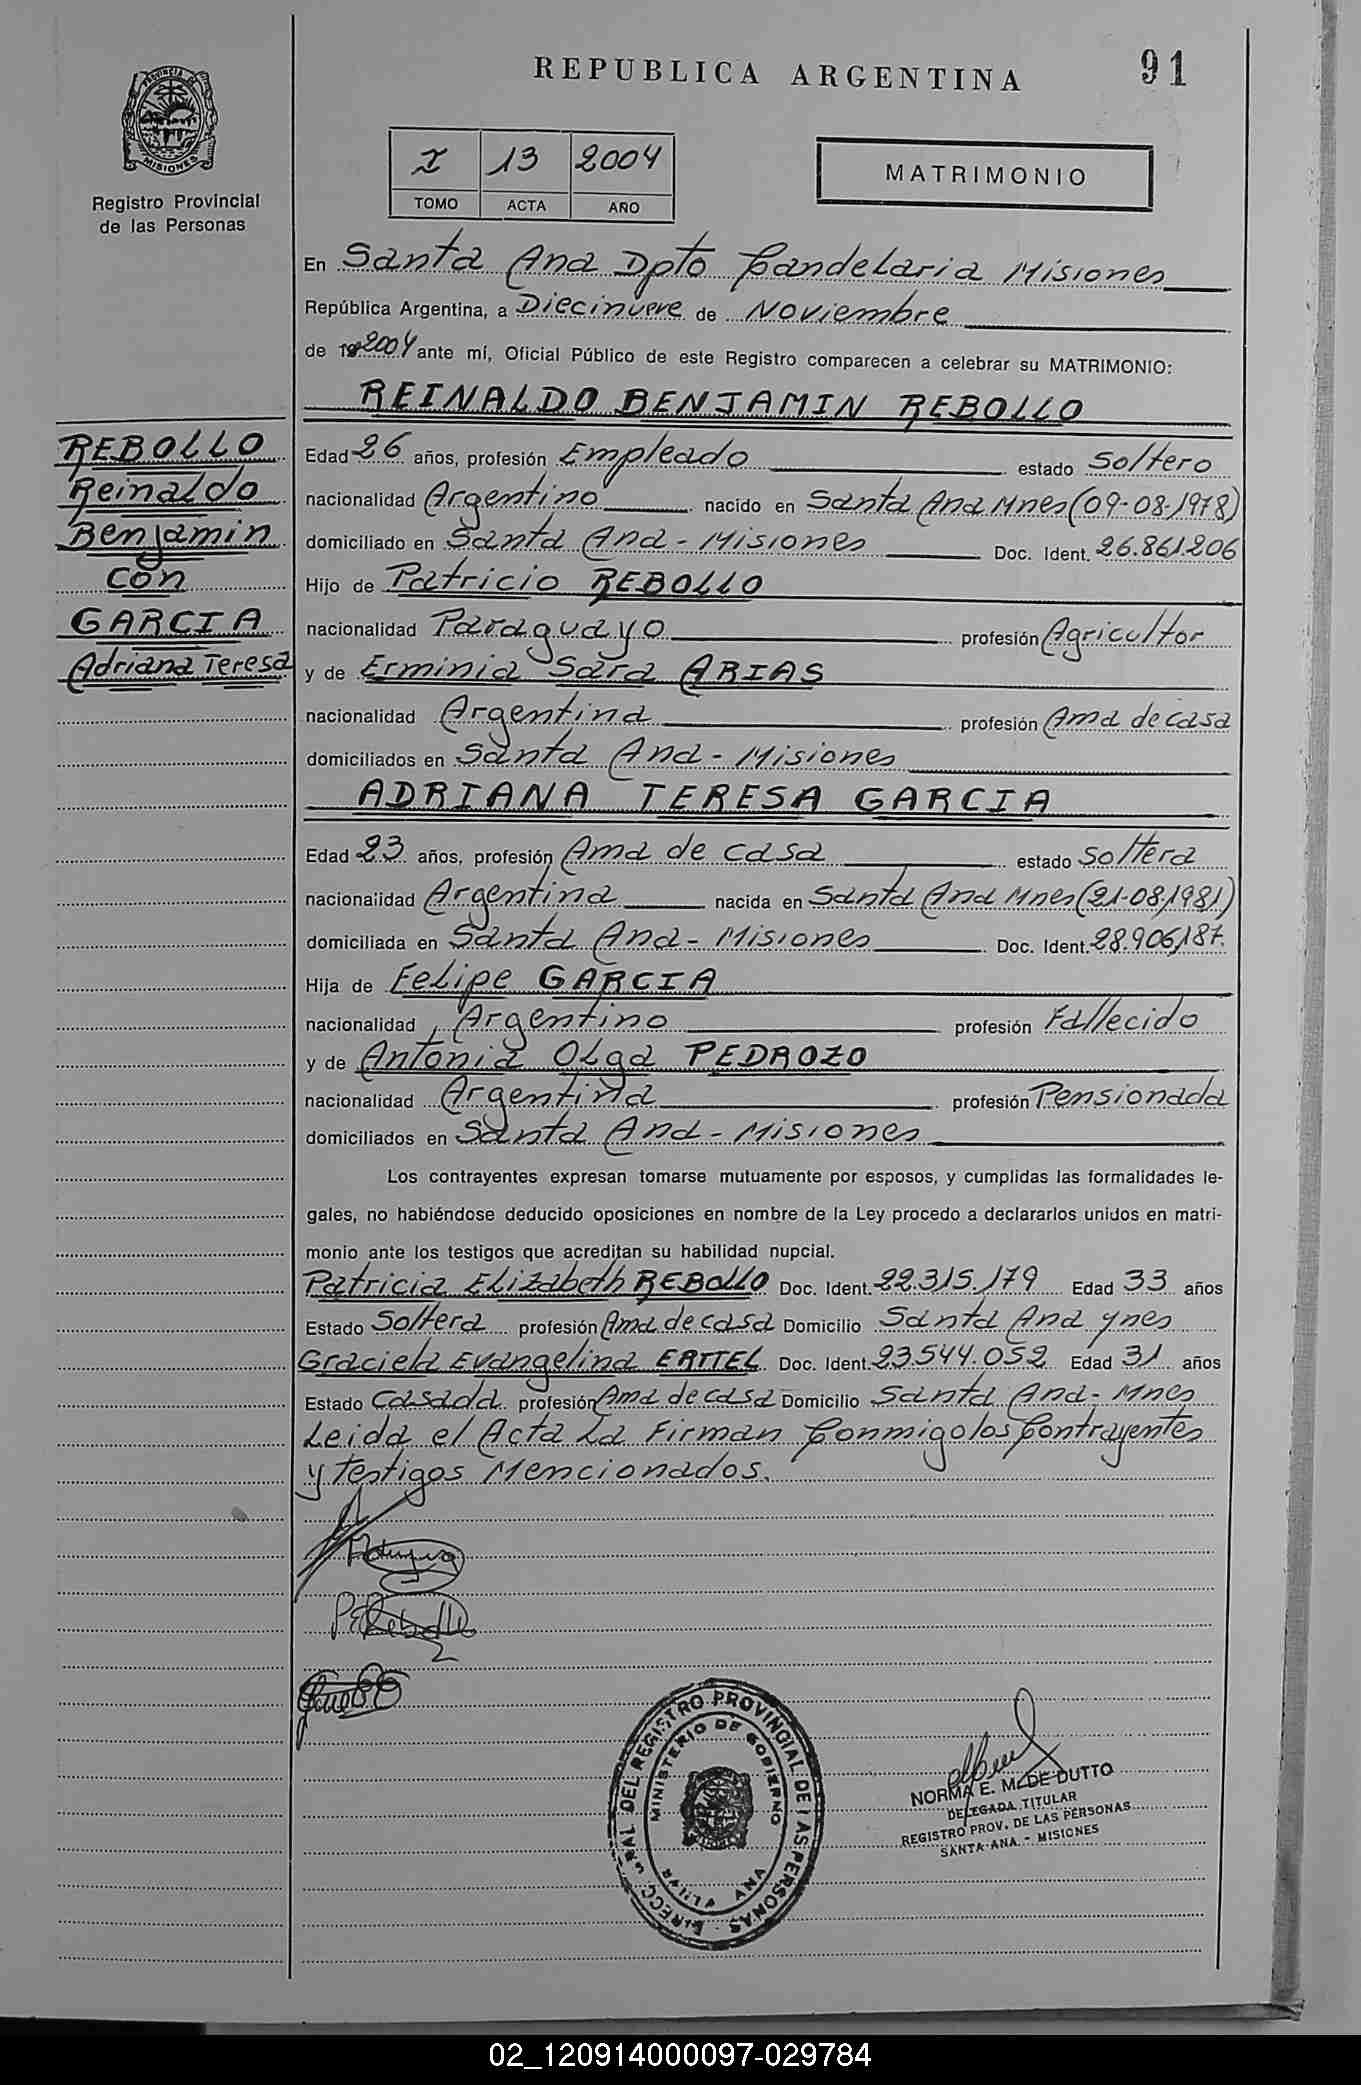 REPUBLICA ARGENTINA
91
PROVINCIA DE
MISIONES
Registro Provincial
de las Personas
I 13 2004
TOMO ACTA AÑO
MATRIMONIO
En Santa Ana Dpto Candelaria Misiones
República Argentina, a Diecinueve de Noviembre
de 2004 ante mí, Oficial Público de este Registro comparecen a celebrar su MATRIMONIO:
REINALDO BENJAMIN REBOLLO
REBOLLO
Reinaldo
Benjamin
con
GARCIA
Adriana Teresa
Edad 26 años, profesión Empleado estado Soltero
nacionalidad Argentino nacido en Santa Ana Mnes (09-08-1978)
domiciliado en Santa Ana - Misiones Doc. Ident. 26.861.206
Hijo de Patricio REBOLLO
nacionalidad Paraguayo profesión Agricultor
y de Erminia Sara ARIAS
nacionalidad Argentina profesión Ama de casa
domiciliados en Santa Ana - Misiones
ADRIANA TERESA GARCIA
Edad 23 años, profesión Ama de casa estado soltera
nacionalidad Argentina nacida en Santa Ana Mnes (21-08-1981)
domiciliada en Santa Ana - Misiones Doc. Ident. 28.906.187.
Hija de Felipe GARCIA
nacionalidad Argentino profesión Fallecido
y de Antonia Olga PEDROZO
nacionalidad Argentina profesión Pensionada
domiciliados en Santa Ana - Misiones
Los contrayentes expresan tomarse mutuamente por esposos, y cumplidas las formalidades le-
gales, no habiéndose deducido oposiciones en nombre de la Ley procedo a declararlos unidos en matri-
monio ante los testigos que acreditan su habilidad nupcial.
Patricia Elizabeth REBOLLO Doc. Ident. 22.315.179 Edad 33 años
Estado Soltera profesión Ama de casa Domicilio Santa Ana
Graciela Evangelina ERTTEL Doc. Ident. 23.544.052 Edad 31 años
Estado Casada profesión Ama de casa Domicilio Santa Ana - Mnes
Leida el Acta La Firman Conmigo los Contrayentes
y testigos Mencionados.
DEL REGISTRO PROVINCIAL DE LAS PERSONAS
MINISTERIO DE GOBIERNO
ANA
NORMA E. M. DE DUTTO
DELEGADA TITULAR
REGISTRO PROV. DE LAS PERSONAS
SANTA ANA - MISIONES
02_120914000097-029784